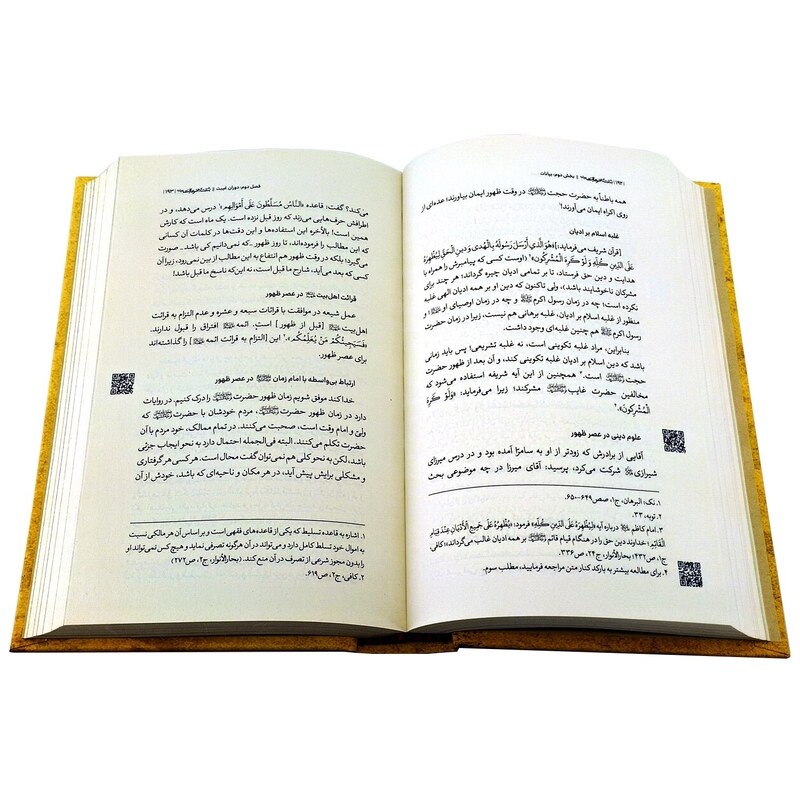 ۱۹۲ || بخش دوم: بیانات
همه باطناً به حضرت حجت در وقت ظهور ایمان بیاورند؛ عده‌ای از
روی اکراه ایمان می‌آورند!
غلبه اسلام بر ادیان
[قرآن شریف می‌فرماید:] «هُوَ الَّذي أَرْسَلَ رَسُولَهُ بِالْهُدى وَ دينِ الْحَقِّ لِيُظْهِرَهُ
عَلَى الدِّينِ كُلِّهِ وَ لَوْ كَرِهَ الْمُشْرِكُونَ»؛ (اوست کسی که پیامبرش را همراه با
هدایت و دین حق فرستاد، تا بر تمامی ادیان چیره گرداند؛ هر چند برای
مشرکان ناخوشایند باشد)، ولی تاکنون که دین او بر همه ادیان الهی غلبه
نکرده است؛ چه در زمان رسول اکرم و چه در زمان اوصیای او.
منظور از غلبه اسلام بر ادیان، غلبه برهانی هم نیست، زیرا در زمان حضرت
رسول اکرم هم چنین غلبه‌ای وجود داشت.
بنابراین، مراد غلبه تکوینی است، نه غلبه تشریعی؛ پس باید زمانی
باشد که دین اسلام بر ادیان غلبه تکوینی کند، و آن بعد از ظهور حضرت
حجت است.۳ همچنین از این آیه شریفه استفاده می‌شود که
مخالفین حضرت غایب مشرکند؛ زیرا می‌فرماید: «وَ لَوْ كَرِهَ
الْمُشْرِكُونَ».۴
علوم دینی در عصر ظهور
آقایی از برادرش که زودتر از او به سامرّا آمده بود و در درس میرزای
شیرازی شرکت می‌کرد، پرسید: آقای میرزا در چه موضوعی بحث
۱. نک: البرهان، ج۱، صص۶۴۹-۶۵۰.
۲. توبه، ۳۳.
۳. امام کاظم درباره آیه «لِيُظْهِرَهُ عَلَى الدِّينِ كُلِّهِ» فرمود: «يُظْهِرُهُ عَلَى جَمِيعِ الْأَدْيَانِ عِنْدَ قِيَامِ
الْقَائِمِ؛ خداوند دین حق را در هنگام قیام قائم بر همه ادیان غالب می‌گرداند» کافی،
ج۱، ص۴۳۲؛ بحارالأنوار، ج۲۴، ص۳۳۶.
۴. برای مطالعه بیشتر به بارکد کنار متن مراجعه فرمایید، مطلب سوم.
فصل دوم: دوران غیبت || |۱۹۳
می‌کند؟ گفت: قاعده «النّاسُ مُسَلَّطُونَ عَلَى أَمْوَالِهِم»۱ درس می‌دهد، و در
اطرافش حرف‌هایی می‌زند که روز قبل نزده است. یک ماه است که کارش
همین است! بالأخره این استفاده‌ها و این دقت‌ها در کلمات آن کسانی
که این مطالب را فرموده‌اند، تا روز ظهور ـ که نمی‌دانیم کی باشد ـ صورت
می‌گیرد؛ بلکه در وقت ظهور هم انتفاع به این مطالب از بین نمی‌رود، زیرا آن
کسی که بعد می‌آید، شارح ما قبل است، نه این‌که ناسخ ما قبل باشد!
قرائت اهل‌بیت در عصر ظهور
عمل شیعه در موافقت با قرائات سبعه و عشره و عدم التزام به قرائت
اهل‌بیت [قبل از ظهور] است. ائمه افتراق را قبول ندارند.
«فَسَيَجِيئُكُمْ مَنْ يُعَلِّمُكُم».۲ این [التزام به قرائت ائمه] را گذاشته‌اند
برای عصر ظهور.
ارتباط بی‌واسطه با امام زمان در عصر ظهور
خدا کند موفق شویم زمان ظهور حضرت را درک کنیم. در روایات
دارد در زمان ظهور حضرت، مردم خودشان با حضرت که
ولیّ و امام وقت است، صحبت می‌کنند. در تمام ممالک، خود مردم با آن
حضرت تکلم می‌کنند. البته فی‌الجمله احتمال دارد به نحو ایجاب جزئی
باشد، لکن به نحو کلی هم نمی‌توان گفت محال است. هر کسی هر گرفتاری
و مشکلی برایش پیش آید، در هر مکان و ناحیه‌ای که باشد، خودش از آن
۱. اشاره به قاعده تسلیط که یکی از قاعده‌های فقهی است و بر اساس آن هر مالکی نسبت
به اموال خود تسلط کامل دارد و می‌تواند در آن هرگونه تصرفی نماید و هیچ کس نمی‌تواند او
را بدون مجوز شرعی از تصرف در آن منع کند. (بحارالأنوار، ج۲، ص۲۷۲)
۲. کافی، ج۲، ص۶۱۹.